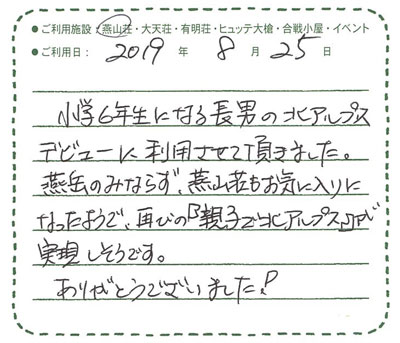 ●ご利用施設：燕山荘・大天荘・有明荘・ヒュッテ大槍・合戦小屋・イベント
●ご利用日： 2019 年 8 月 25 日
小学6年生になる長男の北アルプス
デビューに利用させて頂きました。
燕岳のみならず、燕山荘もお気に入りに
なったようで、再びの『親子で北アルプス』が
実現しそうです。
ありがとうございました!